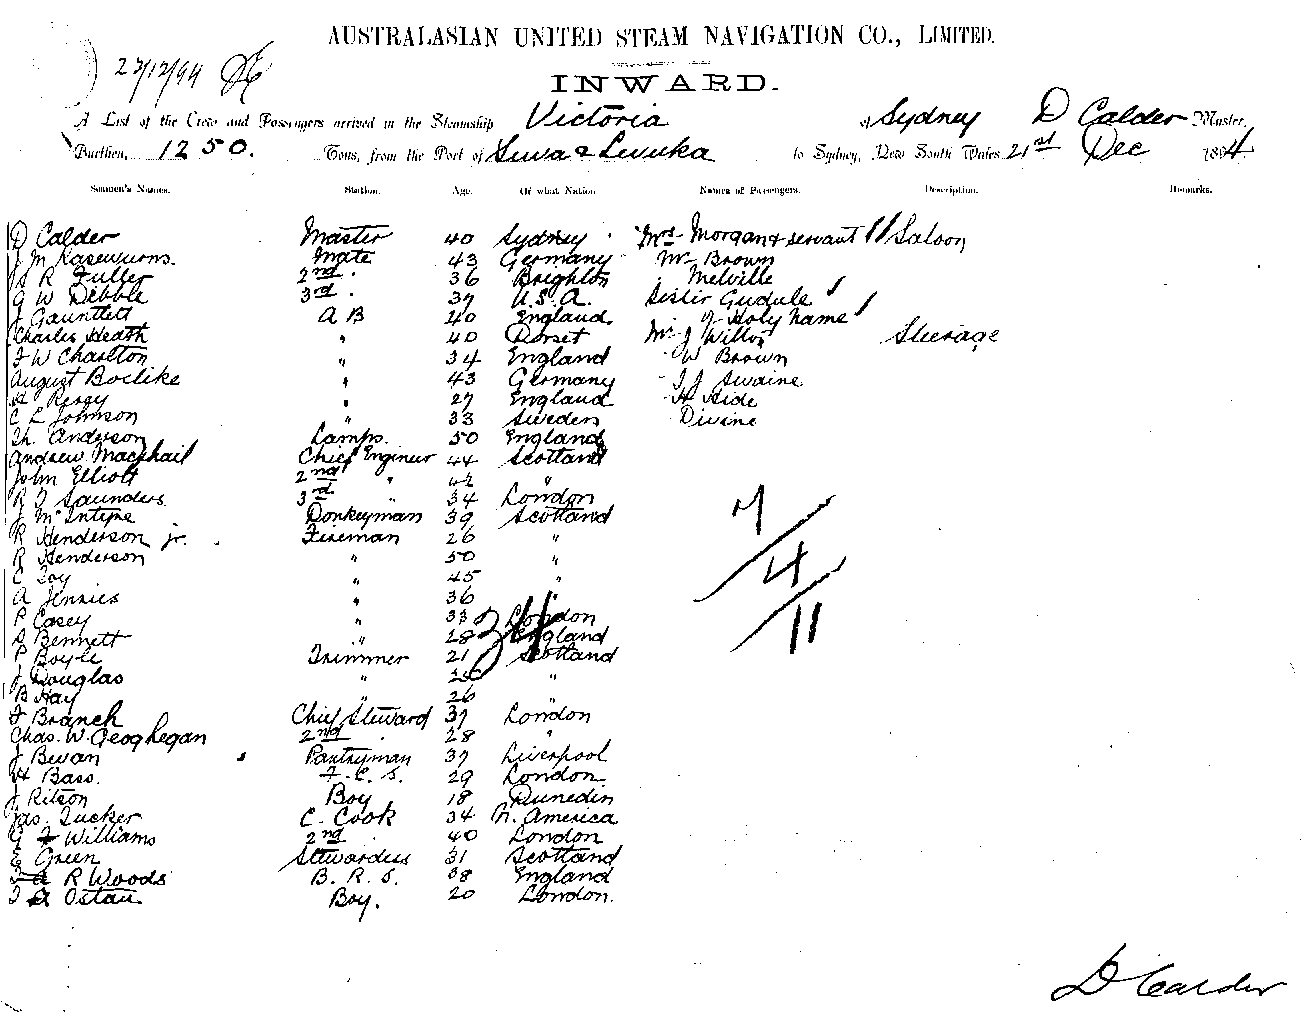 AUSTRALASIAN UNITED STEAM NAVIGATION CO., LIMITED.
23/12/94
INWARD.
A List of the Crew and Passengers arrived in the Steamship Victoria of Sydney D Calder Master,
Burthen, 1250. Tons, from the Port of Suva & Levuka to Sydney, New South Wales 21st Dec 1894
Seamen's Names. Station. Age. Of what Nation Names of Passengers. Description. Remarks.
D Calder Master 40 Sydney Mrs Morgan & servant 11 Saloon
J M Mate 43 Germany Mr Brown
J R Fuller 2nd 36 Brighton Melville
G W Debble 3rd 37 U.S.A. Sister Gudule 1
J Gauntlett A B 40 England " of Holy Name 1
Charles Heath " 40 Dorset Mr J Steerage
F W Charlton " 34 England W Brown
August " 43 Germany J J Swaine
H " 27 England H Hide
C L Johnson " 33 Sweden Divine
Th. Anderson Lamps. 50 England
Andrew Macphail Chief Engineer 44 Scotland
John Elliott 2nd " 42 "
R J Saunders 3rd " 34 London
J McIntyre Donkeyman 39 Scotland
R Henderson jr. Fireman 26 "
R Henderson " 50 "
C " 45 "
A " 36 "
P Casey " 33 London
Bennett " 28 England
P Boyle Trimmer 21 Scotland
J Douglas " "
B Hay " 26 "
F Branch Chief Steward 37 London
Chas. W. Geoghegan 2nd " 28 "
J Bevan Pantryman 37 Liverpool
H Bass. F. C. S. 29 London
J Ritson Boy 18 Dunedin
Jas. Tucker C. Cook 34 N. America
G F Williams 2nd " 40 London
E Green Stewardess 31 Scotland
R Woods B. R. S. 38 England
Boy. 20 London.
34
7
4
11
D Calder